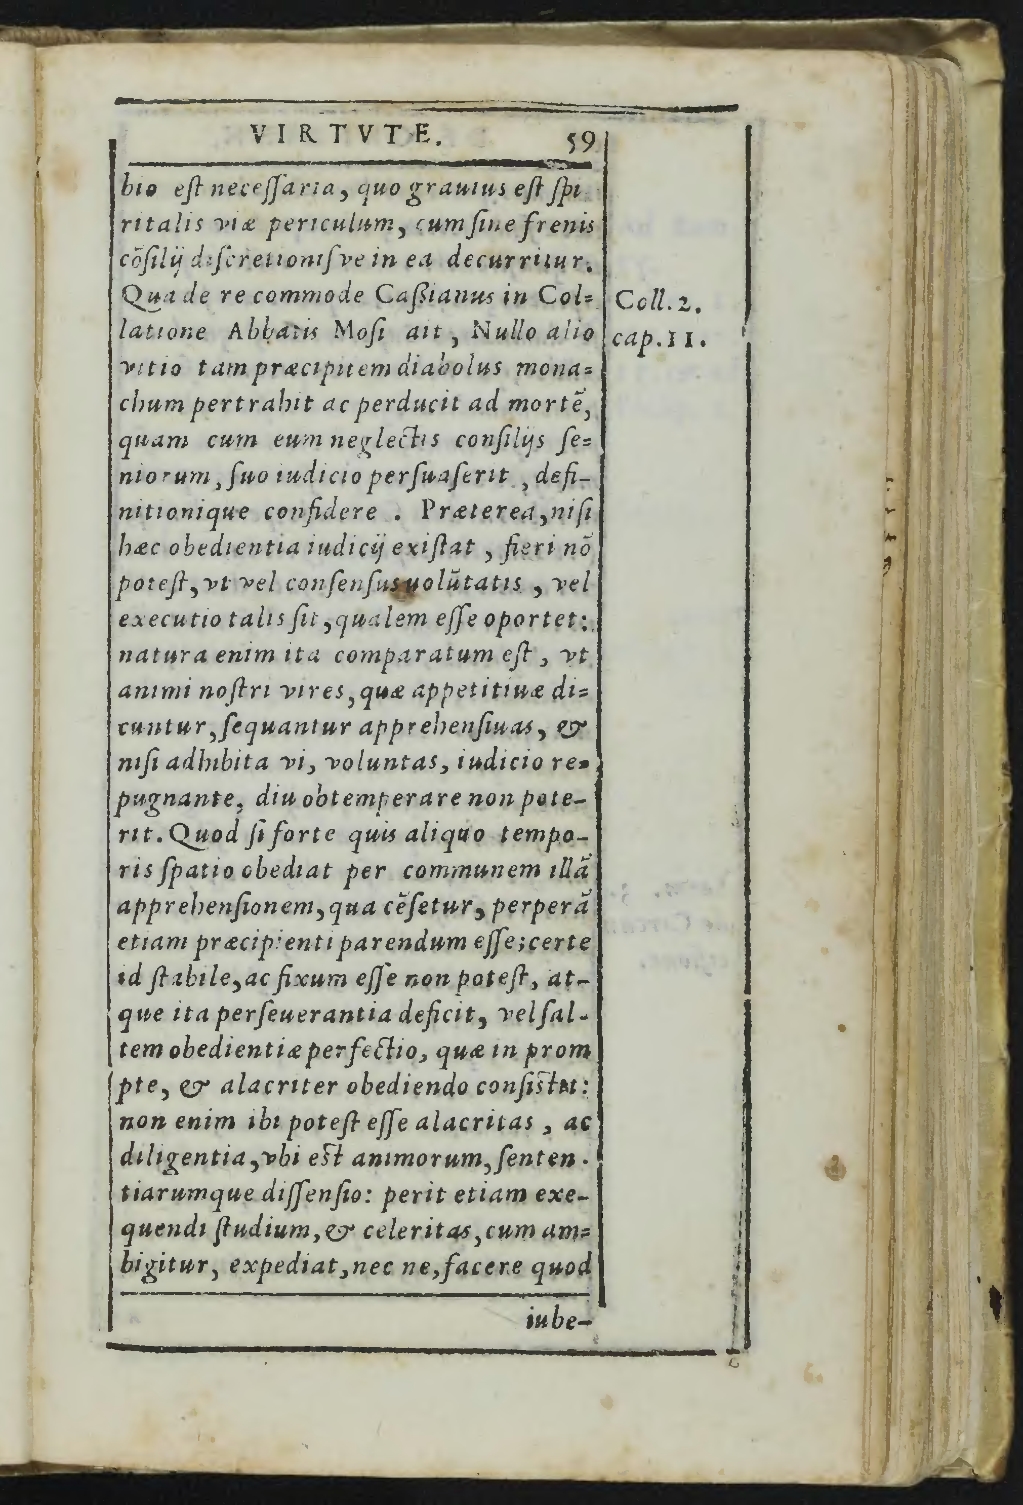 VIRTVTE. 59
bio eſt neceſſaria, quo grauius eſt ſpi
ritalis viæ periculum, cum ſine frenis
cõſilij diſcretioniſve in ea decurritur.
Qua de re commode Caßianus in Col=
latione Abbatis Moſi ait, Nullo alio
vitio tam præcipitem diabolus mona=
chum pertrahit ac perducit ad mortẽ,
quam cum eum neglectis conſilijs ſe=
niorum, ſuo iudicio perſuaſerit, defi-
nitionique confidere. Præterea, niſi
hæc obedientia iudicij exiſtat, fieri nõ
poteſt, vt vel conſenſus uolũtatis, vel
executio talis ſit, qualem eſſe oportet:
natura enim ita comparatum eſt, vt
animi noſtri vires, quæ appetitiuæ di=
cuntur, ſequantur apprehenſiuas, &
niſi adhibita vi, voluntas, iudicio re=
pugnante, diu obtemperare non pote-
rit. Quod ſi forte quis aliquo tempo-
ris ſpatio obediat per communem illã
apprehenſionem, qua cẽſetur, perperã
etiam præcipienti parendum eſſe; certe
id ſtabile, ac fixum eſſe non poteſt, at-
que ita perſeuerantia deficit, vel ſal-
tem obedientiæ perfectio, quæ in prom
pte, & alacriter obediendo conſiſtit:
non enim ibi poteſt eſſe alacritas, ac
diligentia, vbi eſt animorum, ſenten-
tiarumque diſſenſio: perit etiam exe-
quendi ſtudium, & celeritas, cum am=
bigitur, expediat, nec ne, facere quod
iube-
Coll. 2.
cap. 11.